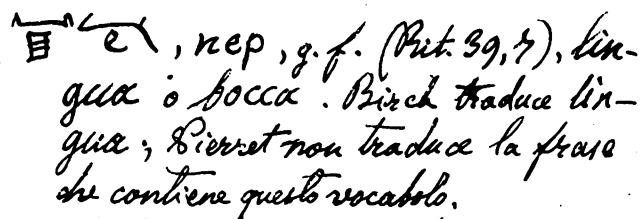 , nep, g. f. (Rit. 39, 7), lin-
gua o bocca. Birch traduce lin-
gua; Pierret non traduce la frase
che contiene questo vocabolo.